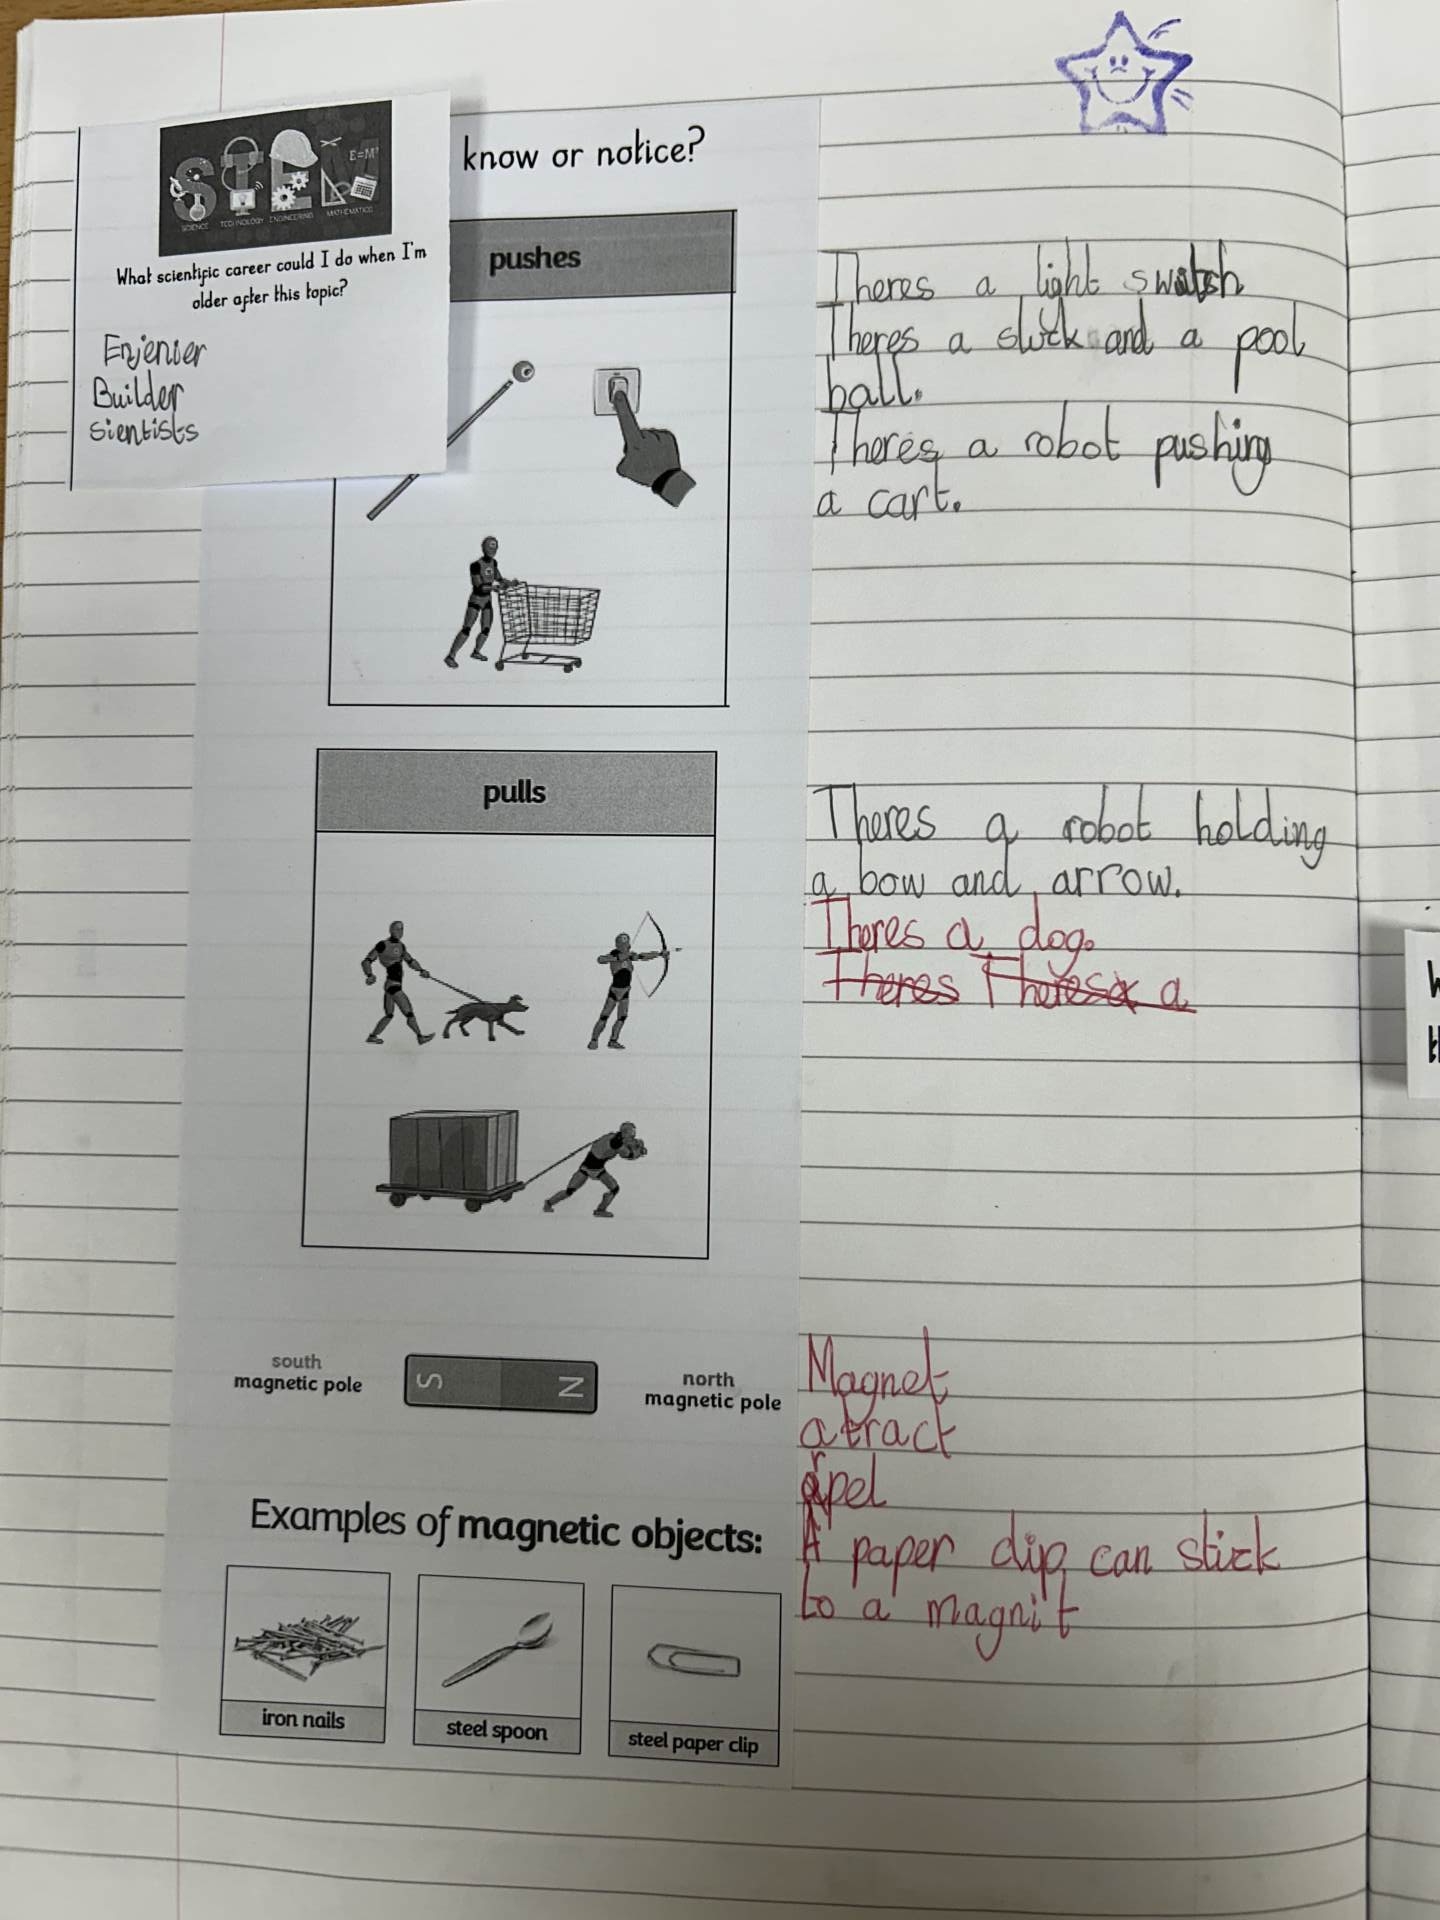 SCIENCE TECHNOLOGY ENGINEERING MATHEMATICS
E=M²
What scientific career could I do when I'm
older after this topic?
Enjenier
Builder
sientists
know or notice?
pushes
Theres a light switsh
Theres a stick and a pool
ball.
Theres a robot pushing
a cart.
pulls
Theres a robot holding
a bow and arrow.
Theres a dog.
Theres Theres a
south
magnetic pole
S
N
north
magnetic pole
Magnet
atract
rpel
A paper clip can stick
to a magnit
Examples of magnetic objects:
iron nails
steel spoon
steel paper clip